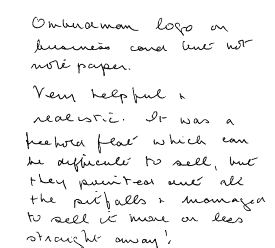 Ombudsman logo on
business card but not
note paper.
Very helpful &
realistic. It was a
freehold flat which can
be difficult to sell, but
they pointed out all
the pitfalls & managed
to sell it more or less
straight away!